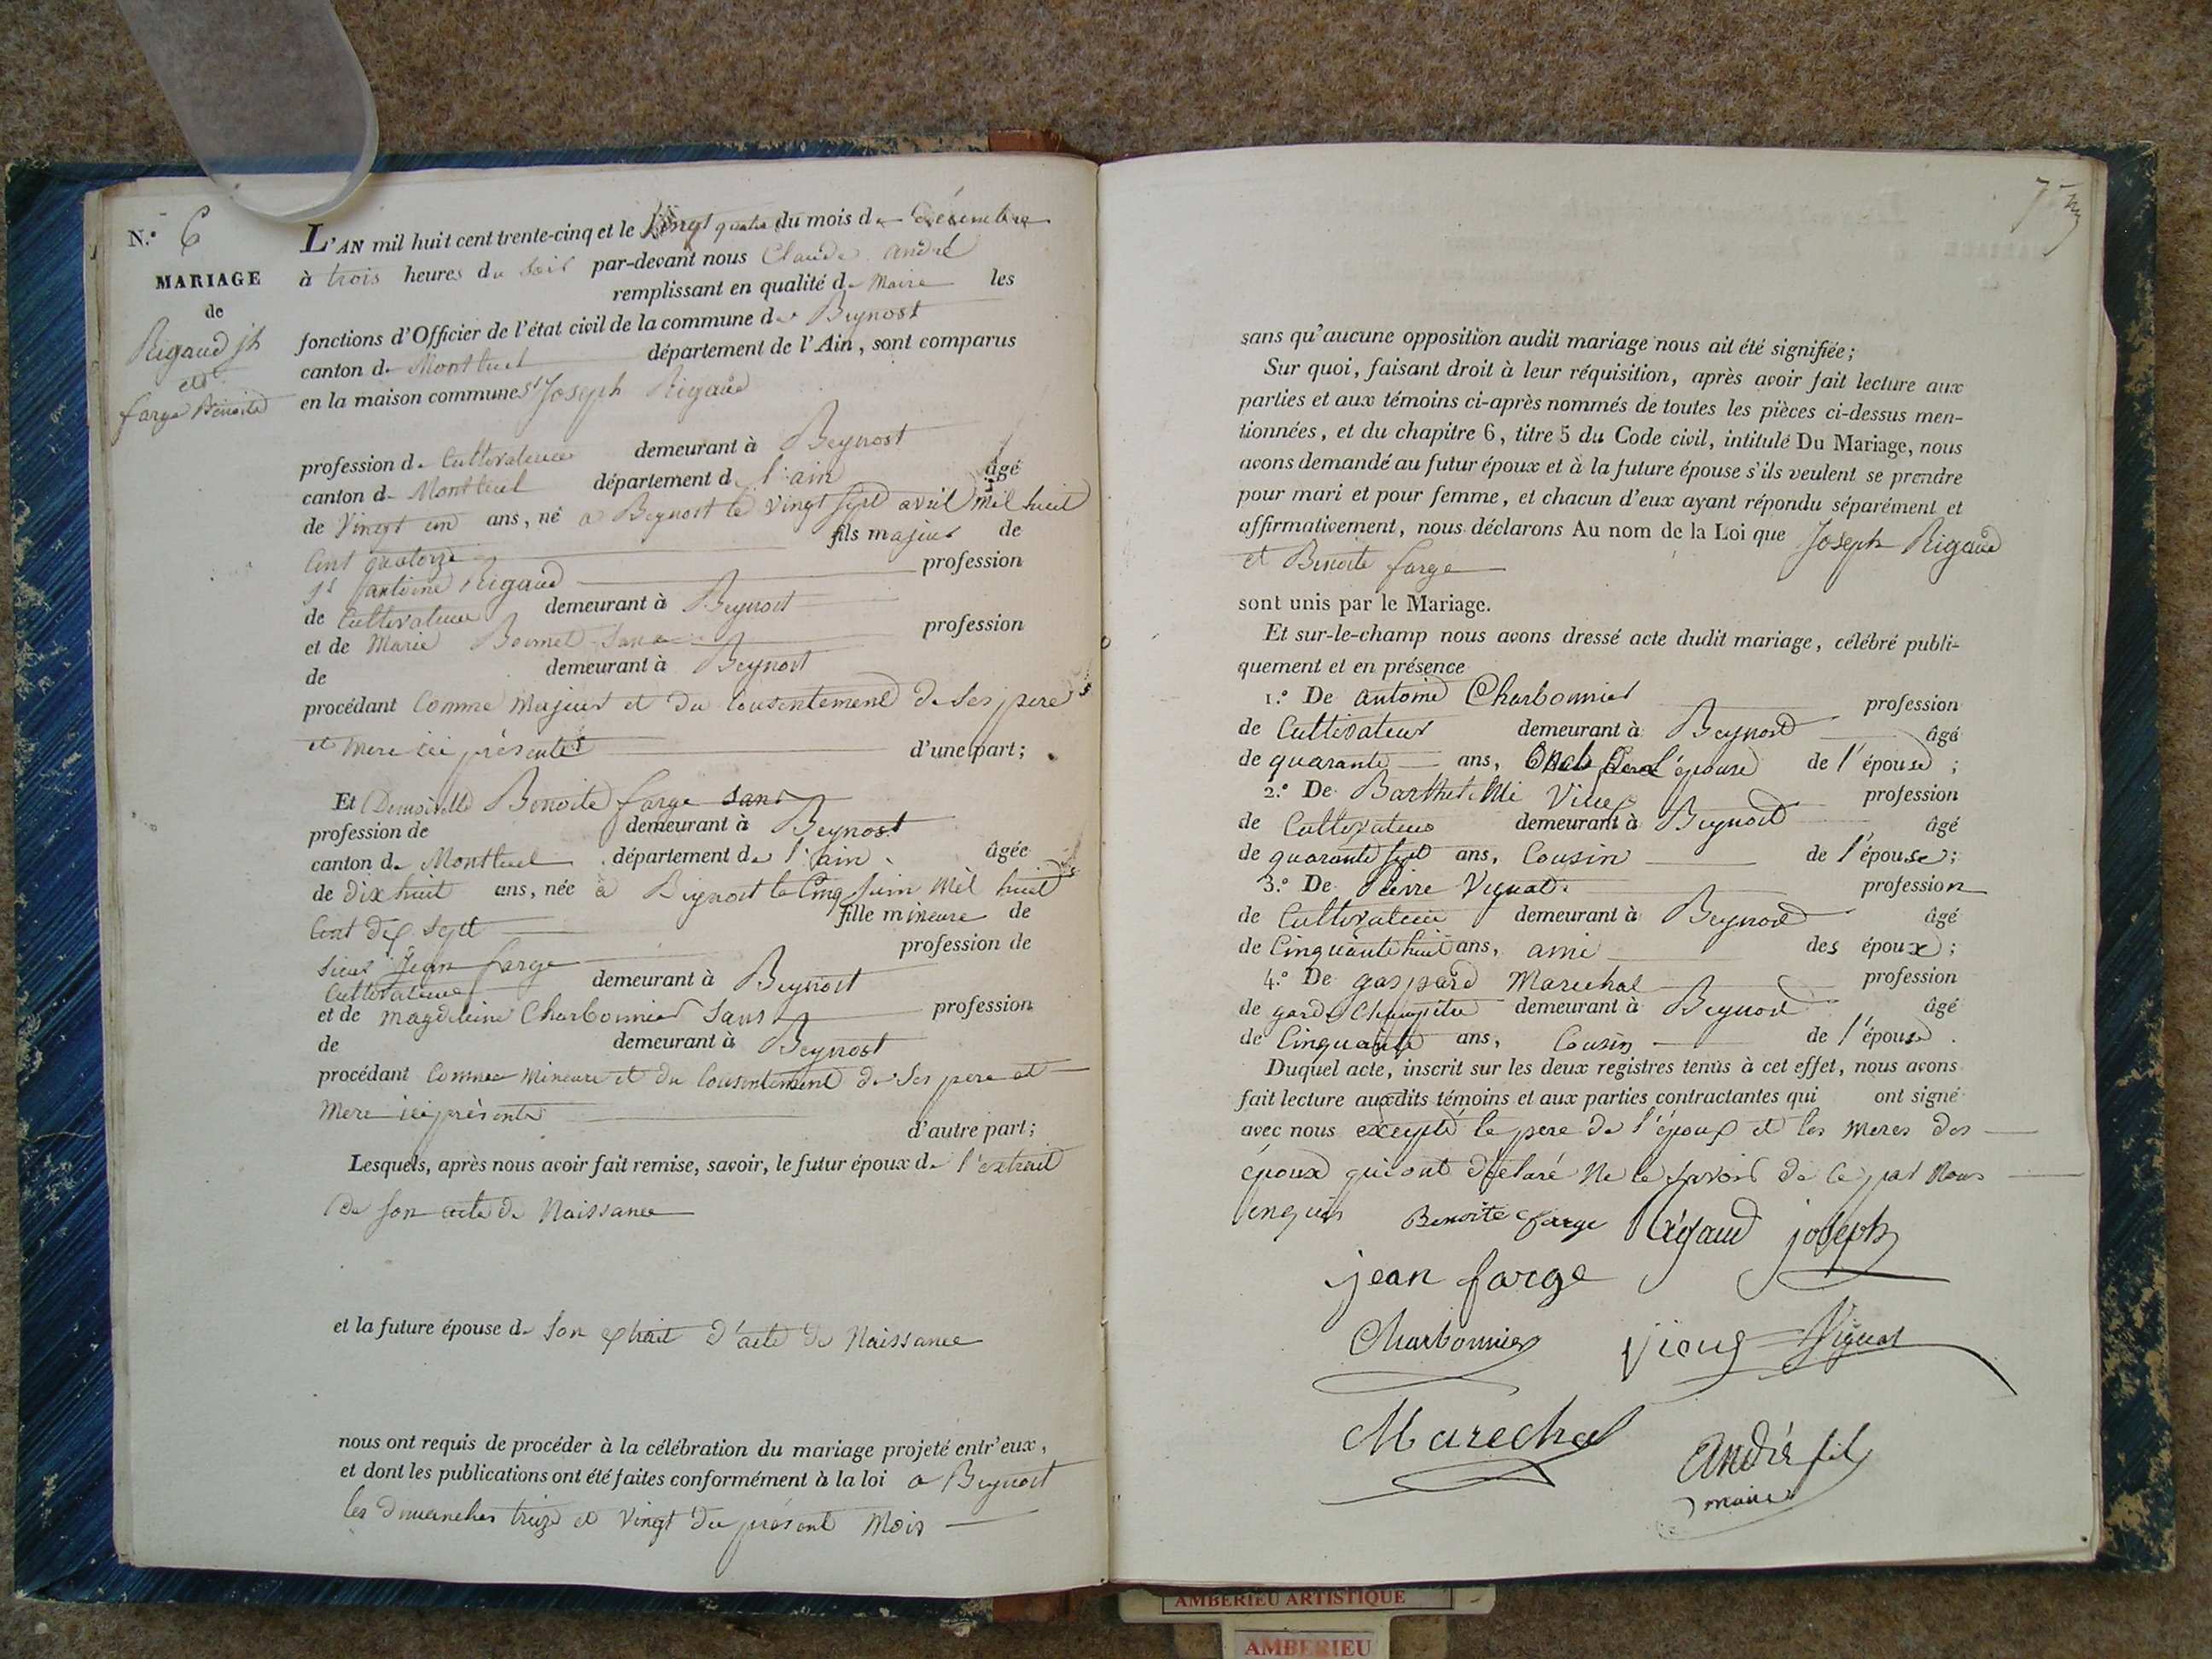 N.° 6
MARIAGE
de
Rigaud jh
et
farge Benoite
L'AN mil huit cent trente-cinq et le Vingt quatre du mois de Décembre
à trois heures du soir par-devant nous Claude andré
remplissant en qualité de Maire les
fonctions d'Officier de l'état civil de la commune de Beynost
canton de Montluel département de l'Ain, sont comparus
en la maison commune Sr Joseph Rigaud
profession de Cultivateur demeurant à Beynost
canton de Montluel département de l'ain âgé
de Vingt un ans, né a Beynost le vingt sept avril mil huit
Cent quatorze fils majeur de
Sr antoine Rigaud profession
de Cultivateur demeurant à Beynost
et de Marie Bornet Sans profession
de demeurant à Beynost
procédant Comme Majeur et du Consentement de Ses pere
et Mere ici présents d'une part;
Et Demoiselle Benoite farge sans
profession de demeurant à Beynost
canton de Montluel département de l'ain âgée
de dix huit ans, née à Beynost le Cinq Juin Mil huit
Cent dix sept fille mineure de
Sieur Jean farge profession de
Cultivateur demeurant à Beynost
et de magdeleine Charbonnier Sans profession
de demeurant à Beynost
procédant Comme Mineure et du Consentement de Ses pere et
Mere ici présents
d'autre part;
Lesquels, après nous avoir fait remise, savoir, le futur époux de l'extrait
de son acte de Naissance
et la future épouse de Son extrait d'acte de Naissance
nous ont requis de procéder à la célébration du mariage projeté entr'eux,
et dont les publications ont été faites conformément à la loi a Beynost
les dimanches treize et Vingt du présent Mois
7
sans qu'aucune opposition audit mariage nous ait été signifiée;
Sur quoi, faisant droit à leur réquisition, après avoir fait lecture aux
parties et aux témoins ci-après nommés de toutes les pièces ci-dessus men-
tionnées, et du chapitre 6, titre 5 du Code civil, intitulé Du Mariage, nous
avons demandé au futur époux et à la future épouse s'ils veulent se prendre
pour mari et pour femme, et chacun d'eux ayant répondu séparément et
affirmativement, nous déclarons Au nom de la Loi que Joseph Rigaud
et Benoite farge
sont unis par le Mariage.
Et sur-le-champ nous avons dressé acte dudit mariage, célébré publi-
quement et en présence
1.° De antoine Charbonnier profession
de Cultivateur demeurant à Beynost âgé
de quarante ans, Oncle de l'épouse de l'épouse;
2.° De Barthelemi profession
de Cultivateur demeurant à Beynost âgé
de quarante sept ans, Cousin de l'épouse;
3.° De Pierre Vignat profession
de Cultivateur demeurant à Beynost âgé
de Cinquante huit ans, ami des époux;
4.° De gaspard Marechal profession
de garde Champêtre demeurant à Beynost âgé
de Cinquante ans, Cousin de l'épouse.
Duquel acte, inscrit sur les deux registres tenus à cet effet, nous avons
fait lecture auxdits témoins et aux parties contractantes qui ont signé
avec nous excepté le pere de l'époux et les meres des
époux qui ont déclaré Ne le savoir de ce par Nous
enquis Benoite farge Rigaud joseph
jean farge
Charbonnier Vignat
Marechal
André fils
maire
AMBERIEU ARTISTIQUE
AMBERIEU